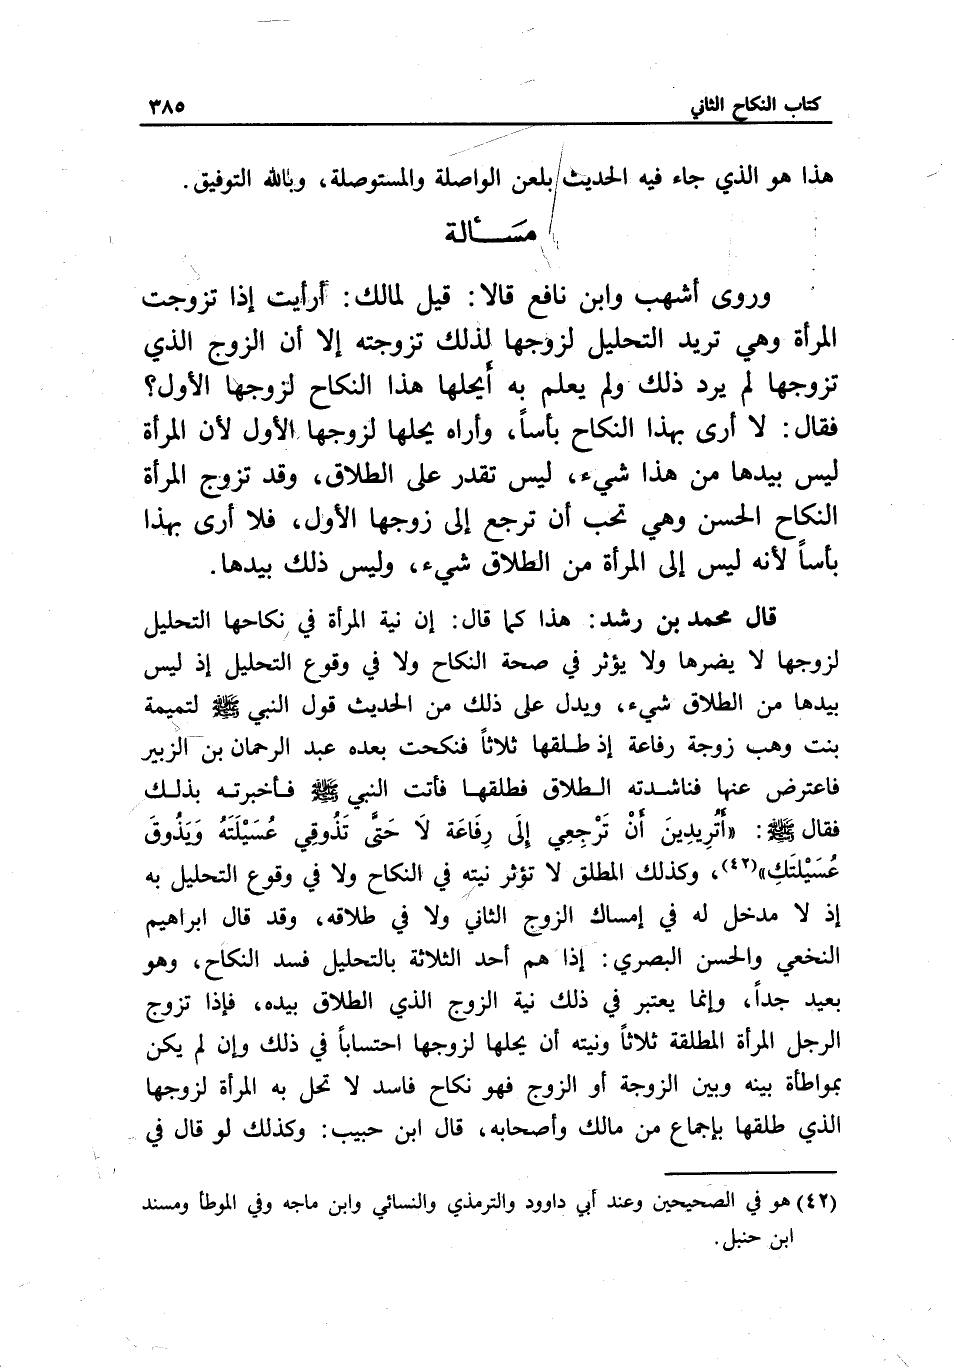 كتاب النكاح الثاني ٣٨٥
هذا هو الذي جاء فيه الحديث بلعن الواصلة والمستوصلة، وبالله التوفيق.
مَسَــألة
وروى أشهب وابن نافع قالا: قيل لمالك: أرأيت إذا تزوجت
المرأة وهي تريد التحليل لزوجها لذلك تزوجته إلا أن الزوج الذي
تزوجها لم يرد ذلك ولم يعلم به أيحلها هذا النكاح لزوجها الأول؟
فقال: لا أرى بهذا النكاح بأساً، وأراه يحلها لزوجها الأول لأن المرأة
ليس بيدها من هذا شيء، ليس تقدر على الطلاق، وقد تزوج المرأة
النكاح الحسن وهي تحب أن ترجع إلى زوجها الأول، فلا أرى بهذا
بأساً لأنه ليس إلى المرأة من الطلاق شيء، وليس ذلك بيدها.
قال محمد بن رشد: هذا كما قال: إن نية المرأة في نكاحها التحليل
لزوجها لا يضرها ولا يؤثر في صحة النكاح ولا في وقوع التحليل إذ ليس
بيدها من الطلاق شيء، ويدل على ذلك من الحديث قول النبي ﷺ لتميمة
بنت وهب زوجة رفاعة إذ طلقها ثلاثاً فنكحت بعده عبد الرحمان بن الزبير
فاعترض عنها فناشدته الطلاق فطلقها فأتت النبي ﷺ فأخبرته بذلك
فقال ﷺ: «أَتُرِيدِينَ أَنْ تَرْجَعِي إِلَى رِفَاعَة لَا حَتَّى تَذُوقِي عُسَيْلَتَهُ وَيَذُوقَ
عُسَيْلَتَكِ»(٤٢)، وكذلك المطلق لا تؤثر نيته في النكاح ولا في وقوع التحليل به
إذ لا مدخل له في إمساك الزوج الثاني ولا في طلاقه، وقد قال ابراهيم
النخعي والحسن البصري: إذا هم أحد الثلاثة بالتحليل فسد النكاح، وهو
بعيد جداً، وإنما يعتبر في ذلك نية الزوج الذي الطلاق بيده، فإذا تزوج
الرجل المرأة المطلقة ثلاثاً ونيته أن يحلها لزوجها احتساباً في ذلك وإن لم يكن
بمواطأة بينه وبين الزوجة أو الزوج فهو نكاح فاسد لا تحل به المرأة لزوجها
الذي طلقها بإجماع من مالك وأصحابه، قال ابن حبيب: وكذلك لو قال في
(٤٢) هو في الصحيحين وعند أبي داوود والترمذي والنسائي وابن ماجه وفي الموطأ ومسند
ابن حنبل.